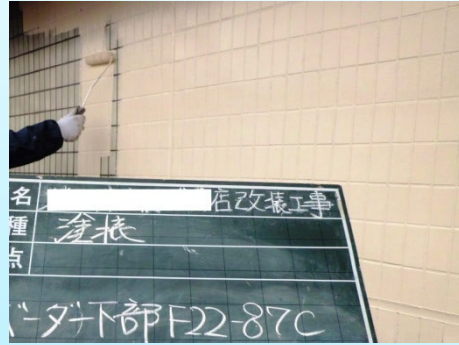 名 店改装工事
種 塗装
点
ーダー下部F22-87C